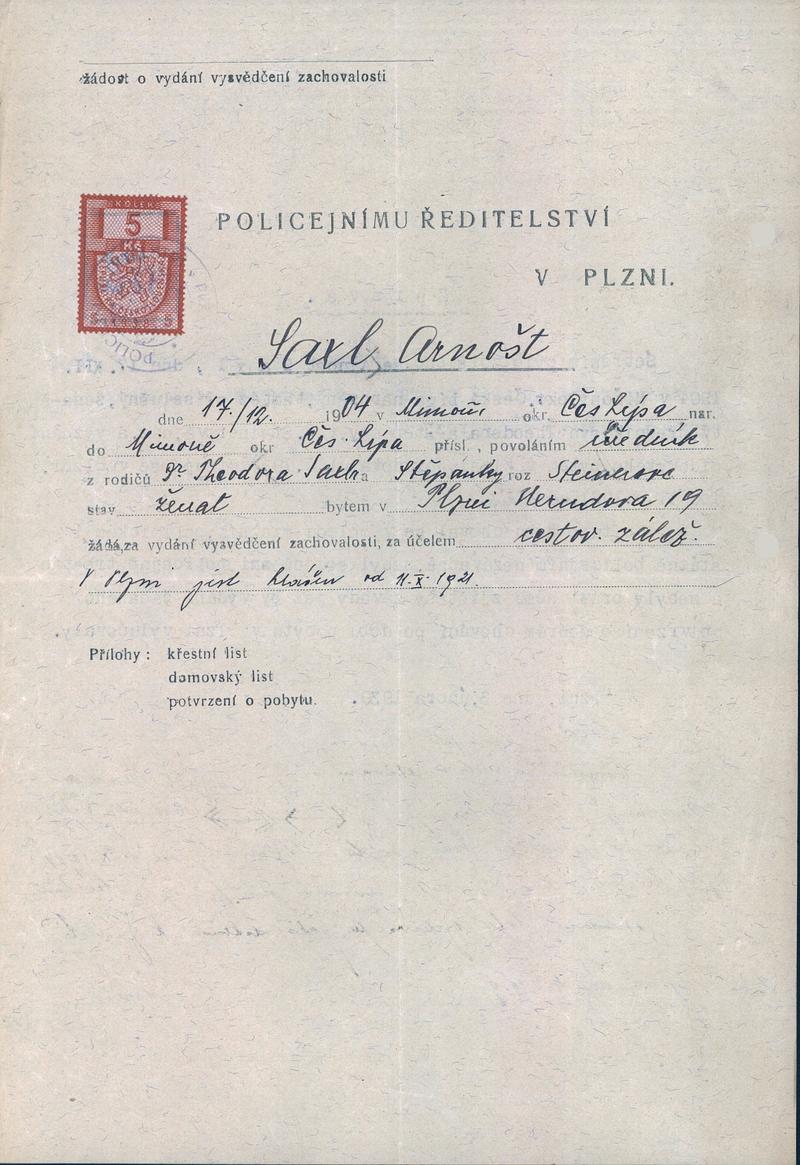 žádost o vydání vysvědčení zachovalosti
KOLEK
5
Kč
POLICEJNÍMU ŘEDITELSTVÍ
V PLZNI.
Saxl, Arnošt
dne 17./12. 1904 v Mimoni okr. Čes Lípa nar.
do Mimoně okr Čes. Lípa přísl., povoláním úředník
z rodičů Dr Theodora Saxla a Štěpánky roz Steinerove
stav ženat bytem v Plzni Nerudova 19
žádá, za vydání vysvědčení zachovalosti, za účelem cestov. zálež.
V Plzni jest hlášen od 11.X.1921.
Přílohy : křestní list
domovský list
potvrzení o pobytu.